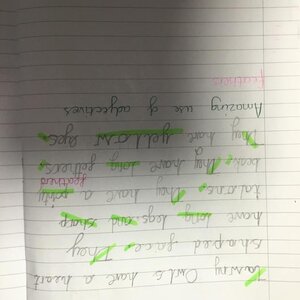 Tawny Owls have a heart
shaped face. They
have long legs and sharp
talons. They have a pointy
feathers
beak. They have long fethers.
They have yellow eyes.
Amazing use of adjectives
feathers